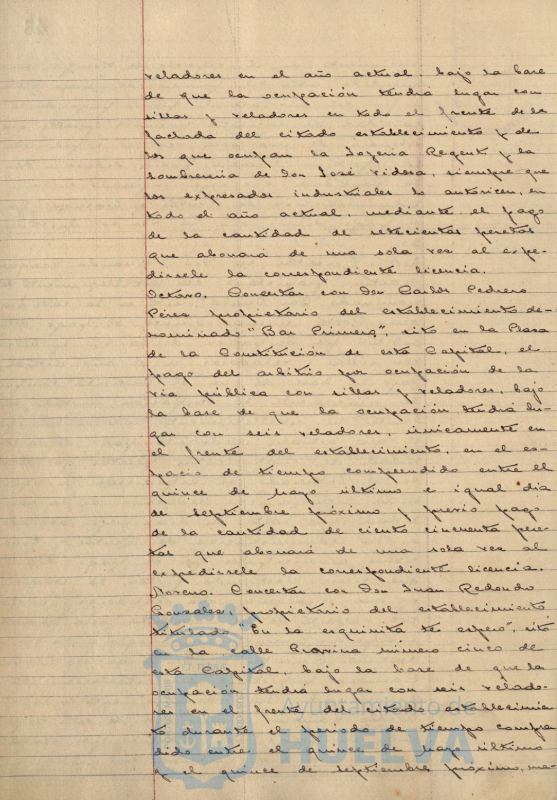 veladores en el año actual, bajo la base
de que la ocupación tendrá lugar con
sillas y veladores en todo el frente de la
fachada del citado establecimiento y de
los que ocupan la Joyeria Regent y la
sombreria de Don José Vidosa, siempre que
los expresados industriales lo autoricen, en
todo el año actual, mediante el pago
de la cantidad de setecientas pesetas
que abonará de una sola vez al expe-
dirsele la correspondiente licencia.
Octavo. Concertar con Don Carlos Pedrero
Pérez propietario del establecimiento de-
nominado "Bar Primera", sito en la Plaza
de la Constitución de esta Capital, el
pago del arbitrio por ocupación de la
vía pública con sillas y veladores, bajo
la base de que la ocupación tendrá lu-
gar con seis veladores, únicamente en
el frente del establecimiento, en el es-
pacio de tiempo comprendido entre el
quince de Mayo último e igual día
de septiembre próximo y previo pago
de la cantidad de ciento cincuenta pese-
tas que abonará de una sola vez al
expedirsele la correspondiente licencia.
Noveno. Concertar con Don Juan Redondo
Gonzalez, propietario del establecimiento
titulado "En la esquinita te espero", sito
en la calle Gravina número cinco de
esta Capital, bajo la base de que la
ocupación tendrá lugar con seis velado-
res en el frente del citado establecimien
to durante el período de tiempo compren
dido entre el quince de Mayo último
y el quince de septiembre próximo, me-
HUELVA